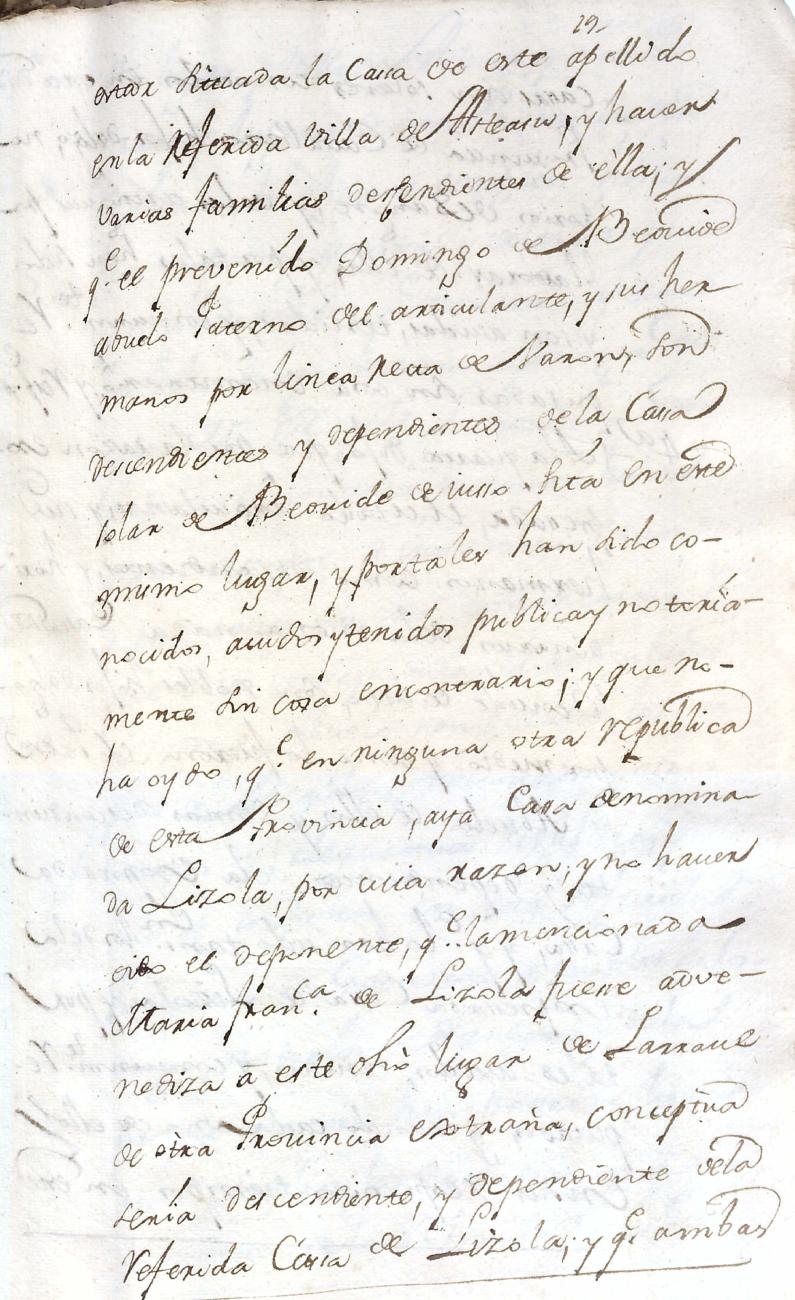 19
estar situada la Casa de este apellido
en la referida Villa de Asteasu, y haver
varias familias desendientes de èlla; y
q.e el prevenido Domingo de Beovide
abuelo Paterno del articulante, y sus her
manos por linea recta de Varon, son
descendientes y dependientes de la Casa
solar de Beovide de iusso sita en este
mismo lugar, y portales han sido co-
nocidos, avidos y tenidos publica y notoria-
mente sin cosa encontrario; y que no-
ha oydo, q.e en ninguna otra republica
de esta Provincia, aya Casa denomina-
da Lizola, por cuia razon, y no haver
oido el deponente, q.e la mencionada
Maria Fran.ca de Lizola fuesse adve-
nediza à este dho lugar de Larraul
de otra Provincia extraña, conceptua
seria descendiente, y dependiente dela
referida Cassa de Lizola; y q.e ambas